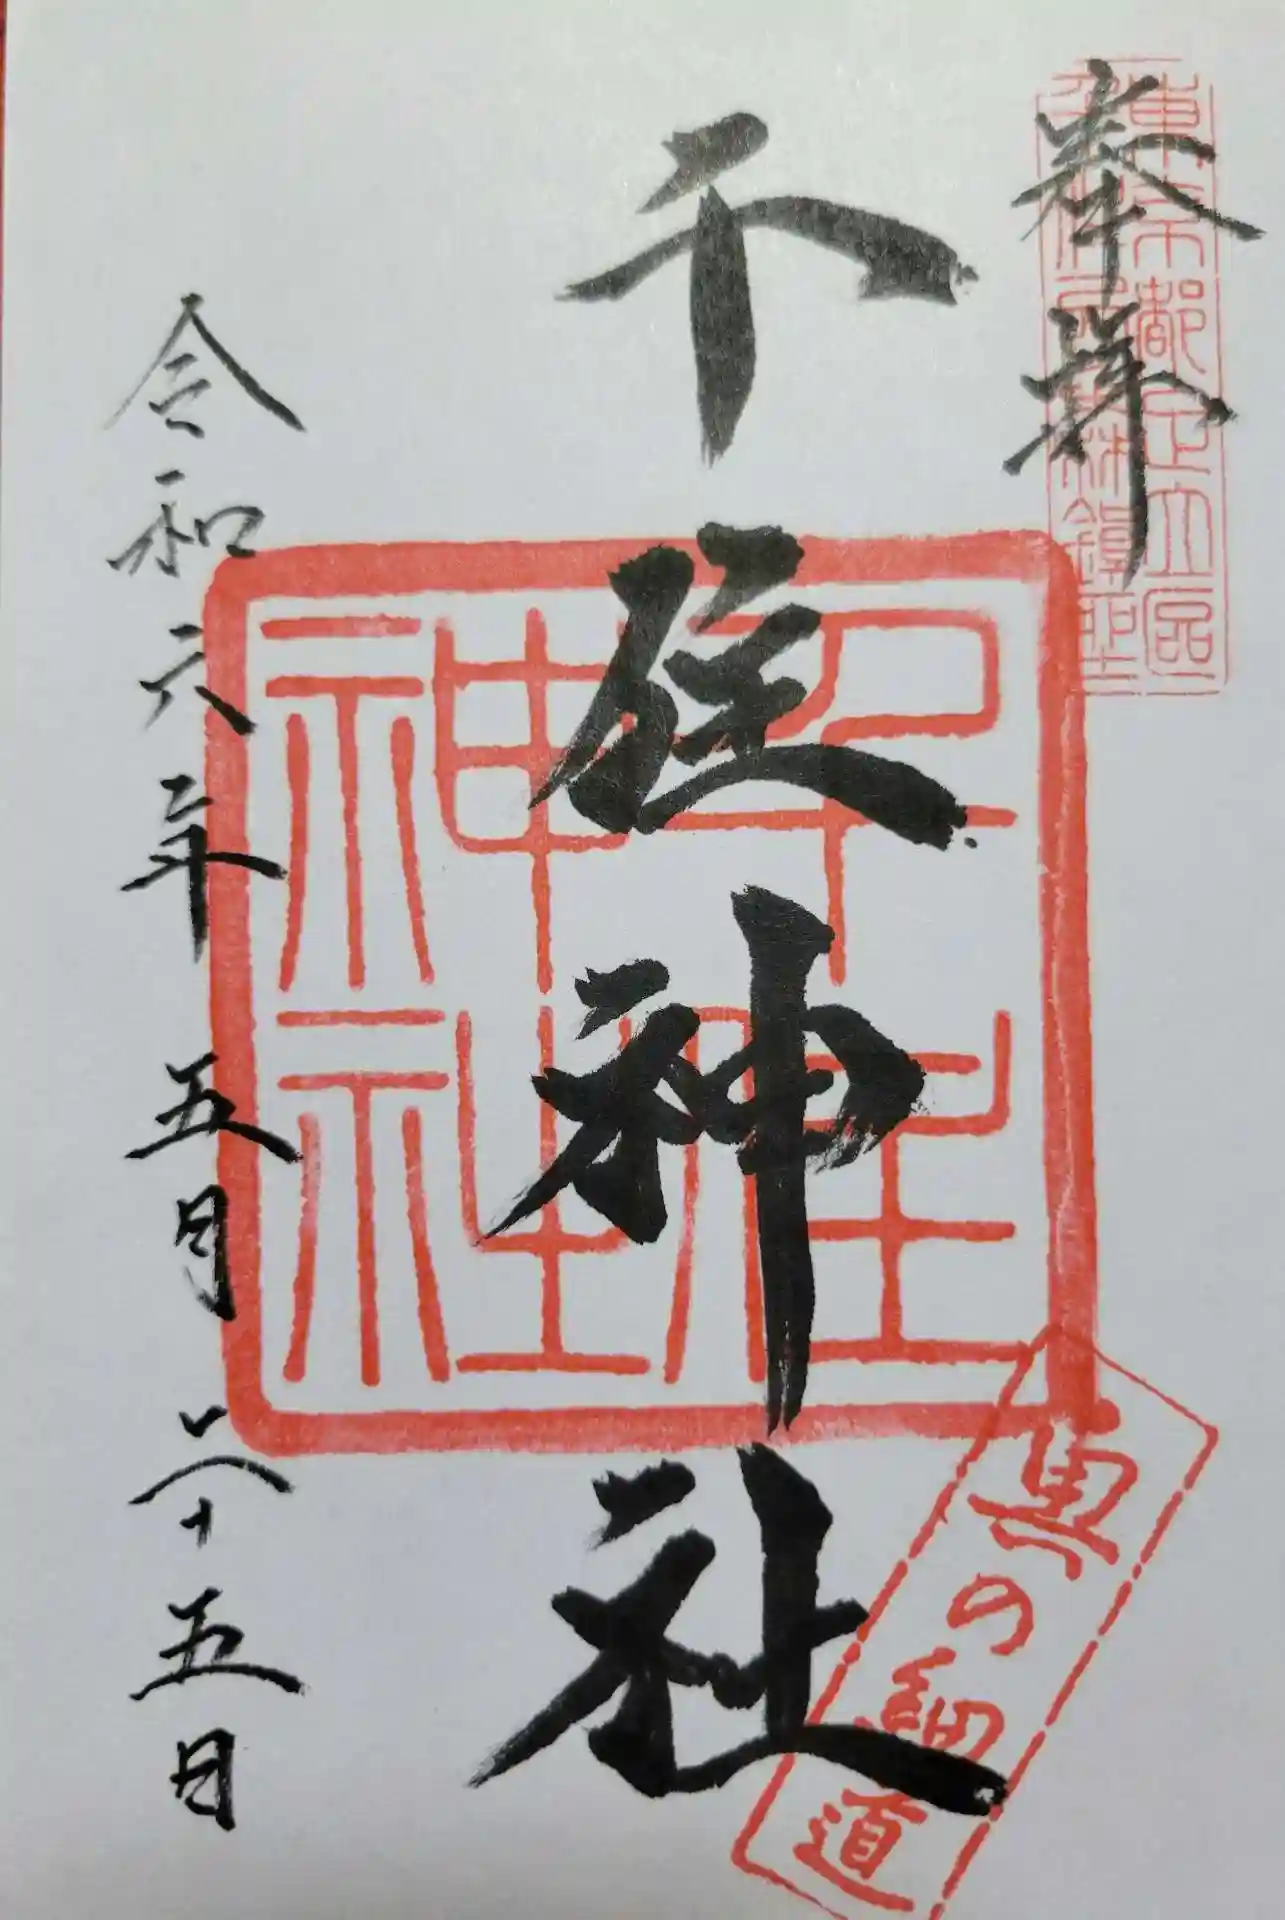 奉拝
東京都足立区
千住神社
千住
神社
令和六年五月二十五日
奥の細道